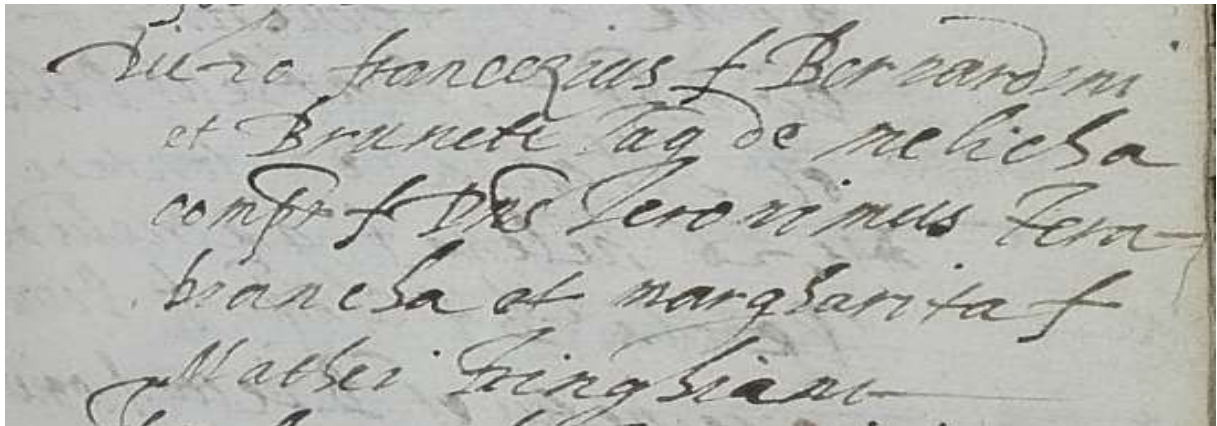 Die 20 francezius f Bernardini
et Brunete Jag de melicha
compr f Dns Jeronimus Terra
biancha et margharita f
Mathei Tringhiani